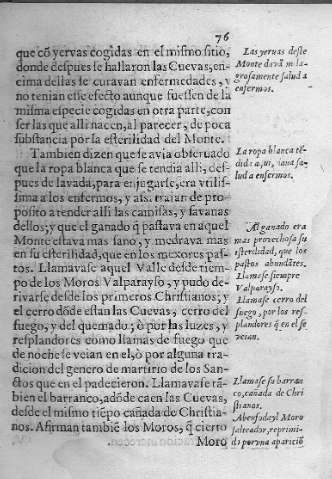 76
que cõ yervas cogidas en el mismo sitio,
donde despues se hallaron las Cuevas, en-
cima dellas se curavan enfermedades, y
no tenian este efecto aunque fuessen de la
misma especie cogidas en otra parte, con
ser las que alli nacen, al parecer, de poca
substancia por la esterilidad del Monte.
Tambien dizen que se avia observado
que la ropa blanca que se tendia alli, des-
pues de lavada, para enjugarse, era utilis-
sima a los enfermos, y assi traian de pro-
posito a tender alli las camisas, y savanas
dellos; y que el ganado q̃ pastava en aquel
Monte estava mas sano, y medrava mas
en su esterilidad, que en los mejores pas-
tos. Llamavase aquel Valle desde tiem-
po de los Moros Valparayso, y pudo de-
rivarse desde los primeros Christianos; y
el cerro dõde estan las Cuevas, cerro del
fuego, y del quemado; ò por las luzes, y
resplandores como llamas de fuego que
de noche se veian en el, ò por alguna tra-
dicion del genero de martirio de los San-
ctos que en el padecieron. Llamavase tã-
bien el barranco, adõde caen las Cuevas,
desde el mismo tiẽpo cañada de Christia-
nos. Afirman tambiẽ los Moros, q̃ cierto
Moro
Las yervas deste
Monte davã mila-
grosamente salud a
enfermos.
La ropa blanca tẽ-
dida aqui, dava sa-
lud a enfermos.
Al ganado era
mas provechosa su
esterilidad, que los
pastos abundãtes.
Llamase siempre
Valparayso.
Llamase cerro del
fuego, por los res-
plandores q̃ en el se
veian.
Llamase su barran
co, cañada de Chri
stianos.
Abenfodayl Moro
salteador, reprimi-
do por una aparició